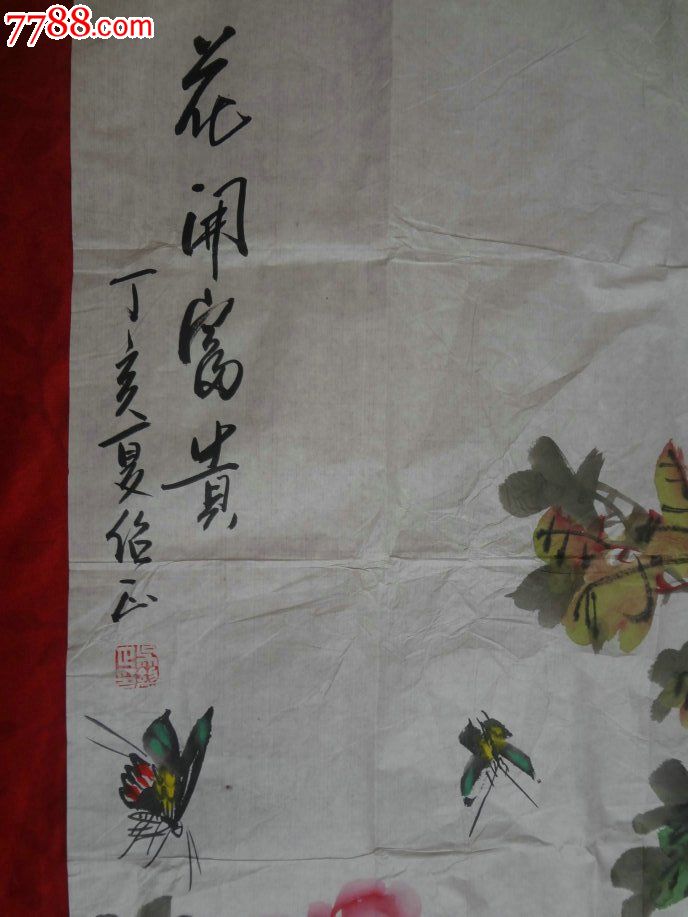 7788.com
花開富貴
丁亥夏紹正